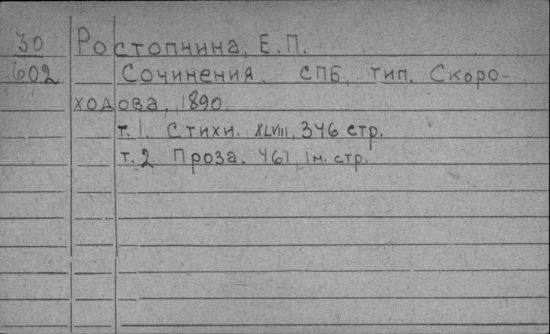 30 Ростопчина, Е.П.
602 Сочинения. СПБ, тип. Скоро-
ходова, 1890.
т. 1. Стихи. XLVIII, 346 стр.
т. 2 Проза. 461, 1 н. стр.